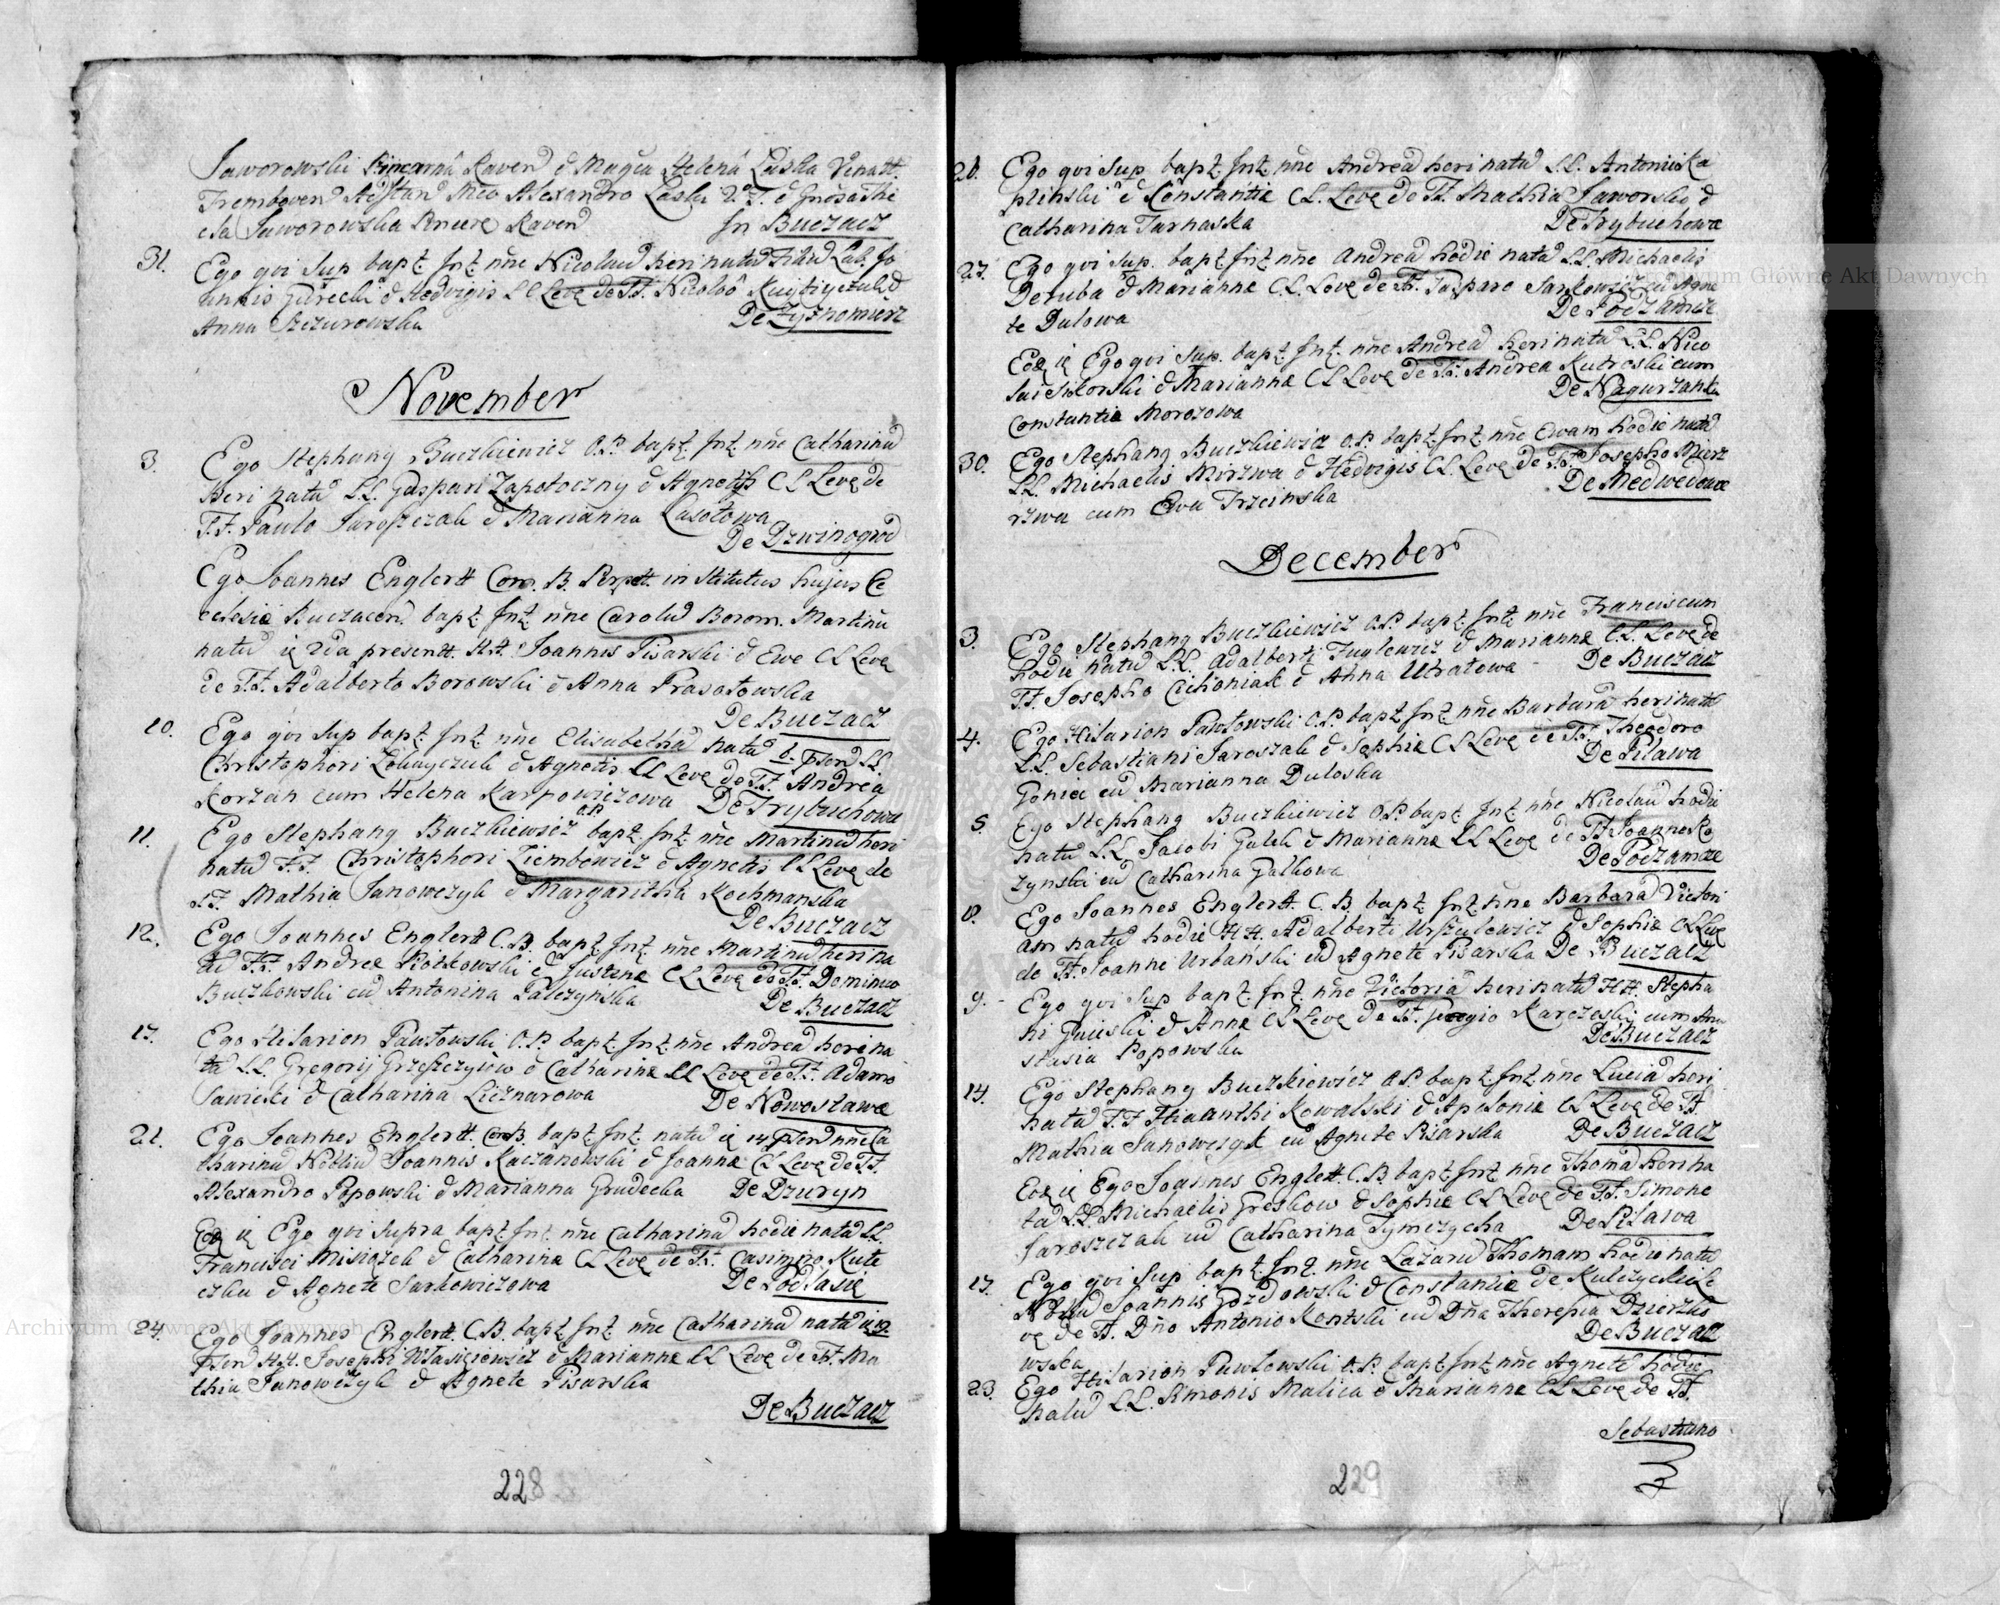 Jaworowski Pincerna Raven et Magca Helena Laska Venatt.
Tremboven Adstan Mco Alexandro Laski et Gnosa The
cla Jaworowska Pincere Raven In Buczacz
31. Ego qvi Sup bapt. Inf. nne Nicolaum heri natum Lab. Jo
annis Gurecki et Hedvigis CL Leve de FF. Nicolao
Anna Szczurowska De Zyznomierz
November
3. Ego Stephang Buczkiewicz O.P. bapt. Inf. nne Catharinam
heri natam LL. Gaspari Zapotoczny et Agnetis CL Leve de
FF. Paulo Jaroszczak et Marianna Lasotowa
De Dzwinogrod
Ego Joannes Englertt Com. B. Perpett. in stitutus hujus Ec
clesie Buczacen bapt. Inf. nne Carolum Borom. Martinum
natum presentt. HH. Joannis Pisarski et Eve CL Leve
de FF. Adalberto Borowski et Anna
De Buczacz
10. Ego qvi Sup bapt. Inf. nne Elisabetham natam LL.
Christophori et Agnetis CL Leve de FF. Andrea
Korzan cum Helena Karpowiczowa De Trybuchowce
11. Ego Stephang Buczkiewicz O.P. bapt. Inf. nne Martinum heri
natum FF. Christophori Ziembowicz et Agnetis CL Leve de
FF. Mathia Janowczyk et Margaritha Kochmanska
De Buczacz
12. Ego Joannes Englertt C.B. bapt. Inf. nne Martinum heri na
tum FF. Andree Piotrkowski et Justine CL Leve de FF. Dominico
Buczkowski cum Antonina Palczynska De Buczacz
13. Ego Hilarion Pawlowski O.P. bapt. Inf. nne Andream heri na
tum LL. Gregorij Grzeszczyszyn et Catharine CL Leve de FF. Adamo
Sawicki et Catharina Licznarowa De Nowostawce
21. Ego Joannes Englertt. Com B. bapt. Inf. natam 14 nne Ca
tharinam Nobilium Joannis Kaczanowski et Joanne CL Leve de FF.
Alexandro Popowski et Marianna Grudecka De Dzuryn
Ego qvi supra bapt. Inf. nne Catharinam hodie natam LL.
Francisci et Catharine CL Leve de FF. Casimiro Kute
czka et Agnete Sarkowiczowa De Podlasie
24. Ego Joannes Englertt. C.B. bapt. Inf. nne Catharinam natam 19
HH. Josephi et Marianne CL Leve de FF. Ma
thia Janowczyk et Agnete Pisarska
De Buczacz
228
26. Ego qvi Sup bapt. Inf. nne Andream heri natum LL. Antonii Ka
plinski et Constantie CL. Leve de FF. Mathia Jaworski et
Catharina Tarnaska De Trybuchowce
27. Ego qvi Sup. bapt. Inf. nne Andream hodie natum LL. Michaelis
Deruba et Marianne CL. Leve de FF. Gasparo Sarkowicz cum Agne
te Dulowa De Podzamcze
Ego qvi Sup. bapt. Inf. nne Andream heri natum LL. Nico
lai Sikorski et Marianne CL Leve de FF. Andrea Kutroski cum
Constantia Morozowa De Nagurzanka
30. Ego Stephang Buczkiewicz O.P. bapt. Inf. nne Evam hodie natam
LL. Michaelis Mirzwa et Hedvigis CL. Leve de FF. Josepho Mierz
rzwa cum Eva Trzcinska De Medwedowce
December
3. Ego Stephang Buczkiewicz O.P. bapt. Inf. nne Franciscum
hodie natum LL. Adalberti et Marianne CL. Leve de
FF. Josepho Cichoniak et Anna Utratowa De Buczacz
4. Ego Hilarion Pawlowski O.P. bapt. Inf. nne Barbaram heri natam
LL. Sebastiani Jaroszak et Sophie CL Leve de FF. Theodoro
Gonica cum Marianna Duloska De Pilawa
5. Ego Stephang Buczkiewicz O.P. bapt. Inf. nne Nicolaum hodie
natum LL. Jacobi Galek et Marianne CL Leve de FF. Joanne Ko
zynski cum Catharina Galkowa De Podzamcze
8. Ego Joannes Englertt. C.B. bapt. Inf. nne Barbaram Victori
am natam hodie HH. Adalberti Urszulewicz et Sophie CL Leve
de FF. Joanne Urbanski cum Agnete Pisarska De Buczacz
9. Ego qvi Sup bapt. Inf. nne Victoriam heri natam HH. Stepha
ni et Anne CL Leve de FF. Karczoski cum Ana
stasia Popowska De Buczacz
14. Ego Stephang Buczkiewicz O.P. bapt. Inf. nne Luciam heri
natam FF. Hiacinthi Kowalski et Apolonie CL Leve de FF.
Mathia Janowczyk cum Agnete Pisarska De Buczacz
Ego Joannes Englertt. C.B. bapt. Inf. nne Thomam heri na
tum LL. Michaelis Greskow et Sophie CL Leve de FF. Simone
Jaroszczak cum Catharina Tymczycha De Pilawa
17. Ego qvi Sup bapt. Inf. nne Lazarum Thomam hodie natum
Nobilium Joannis Gozdowski et Constantie de Kulczyckie CL Le
ve de FF. Dno Antonio Kontski cum Dna Theresia Dzierzko
wska De Buczacz
23. Ego Hilarion Pawlowski O.P. bapt. Inf. nne Agnetem hodie
natam LL. Simonis Malica et Marianne CL Leve de FF.
Sebastiano
229
Archiwum Główne Akt Dawnych
Archiwum Główne Akt Dawnych